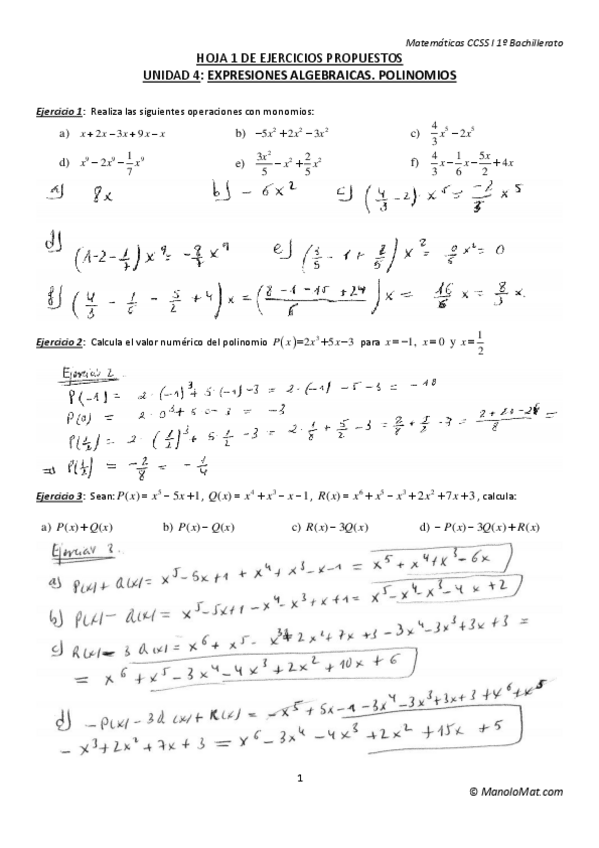 Matemáticas CCSS I 1º Bachillerato
HOJA 1 DE EJERCICIOS PROPUESTOS
UNIDAD 4: EXPRESIONES ALGEBRAICAS. POLINOMIOS
Ejercicio 1: Realiza las siguientes operaciones con monomios:
a) x+2x−3x+9x−x b) −5x²+2x²−3x² c) 4/3 x⁵−2x⁵
d) x⁹−2x⁹−1/7 x⁹ e) 3x²/5−x²+2/5 x² f) 4/3 x−1/6 x−5x/2+4x
a) 8x b) −6x² c) (4/3 −2)·x⁵= −2/3 x⁵
d) (1−2−1/7)x⁹= −8/7 x⁹ e) (3/5 −1+2/5)x²= 0/5 x²= 0
f) (4/3 − 1/6 − 5/2 + 4)x = (8−1−15+24/6)x = 16/6 x = 8/3 x.
Ejercicio 2: Calcula el valor numérico del polinomio P(x)=2x³+5x−3 para x=−1, x=0 y x=1/2
Ejercicio 2.
P(−1) = 2·(−1)³+5·(−1)−3 = 2·(−1)−5−3 = −10
P(0) = 2·0³+5·0−3 = −3
P(1/2) = 2·(1/2)³+5·1/2−3 = 2·1/8+5/2−3 = 2/8+5/2−3 = 2+20−24/8 =
⇒ P(1/2) = −2/8 = −1/4
Ejercicio 3: Sean: P(x)= x⁵−5x+1, Q(x)= x⁴+x³−x−1, R(x)= x⁶+x⁵−x³+2x²+7x+3, calcula:
a) P(x)+Q(x) b) P(x)−Q(x) c) R(x)−3Q(x) d) −P(x)−3Q(x)+R(x)
Ejercicio 3.
a) P(x)+Q(x)= x⁵−5x+1+x⁴+x³−x−1 = x⁵+x⁴+x³−6x
b) P(x)−Q(x)= x⁵−5x+1−x⁴−x³+x+1= x⁵−x⁴−x³−4x+2
c) R(x)−3Q(x)= x⁶+x⁵−x³+2x²+7x+3−3x⁴−3x³+3x+3 =
= x⁶+x⁵−3x⁴−4x³+2x²+10x+6
d) −P(x)−3Q(x)+R(x)= −x⁵+5x−1−3x⁴−3x³+3x+3+x⁶+x⁵
−x³+2x²+7x+3 = x⁶−3x⁴−4x³+2x²+15x+5
1
© ManoloMat.com